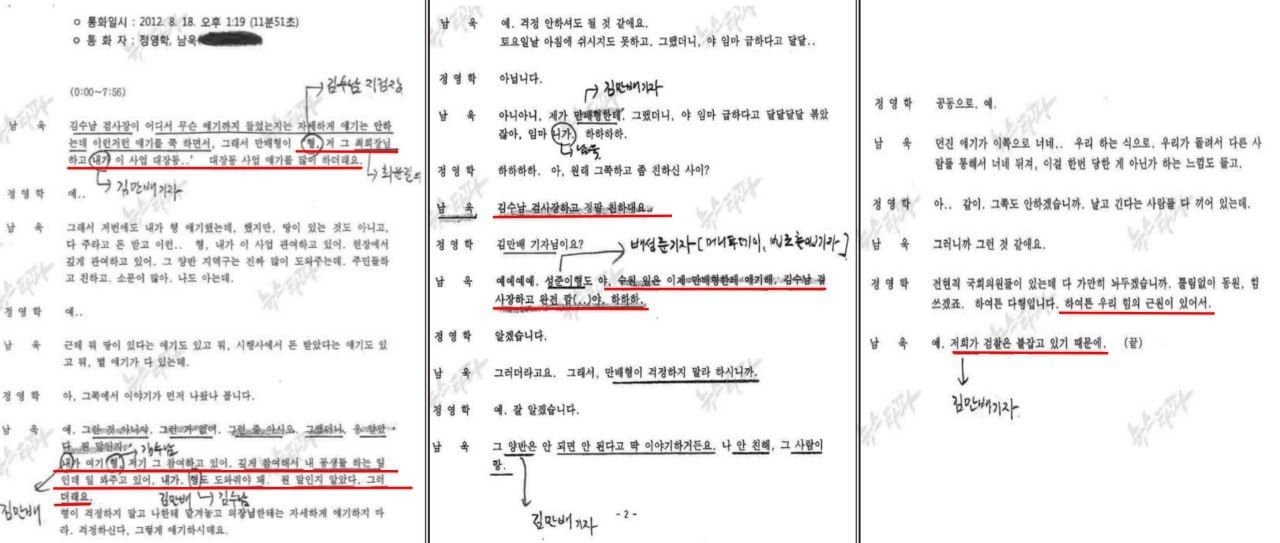 ○ 통화일시 : 2012. 8. 18. 오후 1:19 (11분51초)
○ 통 화 자 : 정영학, 남욱
김수남 지검장
(0:00~7:56)
남 욱 김수남 검사장이 어디서 무슨 얘기까지 들었는지는 자세하게 얘기는 안하
는데 이런저런 얘기를 쭉 하면서, 그래서 만배형이 '형, 저 그 최회장님
하고 내가 이 사업 대장동..' 대장동 사업 얘기를 많이 하더래요.
김만배기자
정 영 학 예..
남 욱 그래서 저번에도 내가 형 얘기했는데, 했지만, 땅이 있는 것도 아니고,
다 주라고 돈 받고 이런.. 형, 내가 이 사업 관여하고 있어. 현장에서
깊게 관여하고 있어. 그 양반 지역구는 진짜 많이 도와주는데. 주민들하
고 친하고, 소문이 많아. 나도 아는데.
정 영 학 예..
남 욱 근데 뭐 땅이 있다는 얘기도 있고 뭐, 시행사에서 돈 받았다는 얘기도 있
고 뭐, 별 얘기가 다 있는데.
정 영 학 아, 그쪽에서 이야기가 먼저 나왔나 봅니다.
남 욱 예. 그런 것 아니야. 그런 거 없어. 그런 줄 아시오. 그랬더니, 응 알았
다. 뭔 말인지.
김수남
내가 여기 형, 저기 그 참여하고 있어. 깊게 참여해서 내 동생들 하는 일
인데 일 봐주고 있어, 내가. 형도 도와줘야 돼. 뭔 말인지 알았다. 그러
더래요.
김만배
김만배 김수남
형이 걱정하지 말고 나한테 맡겨놓고 의장님한테는 자세하게 얘기하지 마
라. 걱정하신다, 그렇게 얘기하시데요.
남 욱 예. 걱정 안하셔도 될 것 같애요.
토요일날 아침에 쉬시지도 못하고. 그랬더니, 야 임마 급하다고 달달..
정 영 학 아닙니다.
김만배기자
남 욱 아니아니, 제가 만배형한테. 그랬더니, 야 임마 급하다고 달달달달 볶았
잖아, 임마 니가. 하하하하.
남욱
정 영 학 하하하하. 아, 원래 그쪽하고 좀 친하신 사이?
남 욱 김수남 검사장하고 정말 친하대요.
정 영 학 김만배 기자님이요?
배성준기자
남 욱 예예예예. 성준이형도 야, 수원 일은 이제 만배형한테 얘기해. 김수남 검
사장하고 완전 깜(..)야. 하하하.
정 영 학 알겠습니다.
남 욱 그러더라고요. 그래서, 만배형이 걱정하지 말라 하시니까.
정 영 학 예. 잘 알겠습니다.
남 욱 그 양반은 안 되면 안 된다고 딱 이야기하거든요. 나 안 친해, 그 사람이
랑.
김만배기자
- 2 -
정 영 학 공동으로, 예.
남 욱 먼진 얘기가 이쪽으로 너네.. 우리 하는 식으로, 우리가 돌려서 다른 사
람들 통해서 너네 뒤져, 이걸 한번 당한 게 아닌가 하는 느낌도 들고.
정 영 학 아.. 같이. 그쪽도 안하겠습니까. 날고 긴다는 사람들 다 끼어 있는데.
남 욱 그러니까 그런 것 같애요.
정 영 학 전현직 국회의원들이 있는데 다 가만히 놔두겠습니까. 틀림없이 동원, 힘
쓰겠죠. 하여튼 다행입니다. 하여튼 우리 힘의 근원이 있어서.
남 욱 예. 저희가 검찰은 붙잡고 있기 때문에. (끝)
김만배기자
뉴스타파